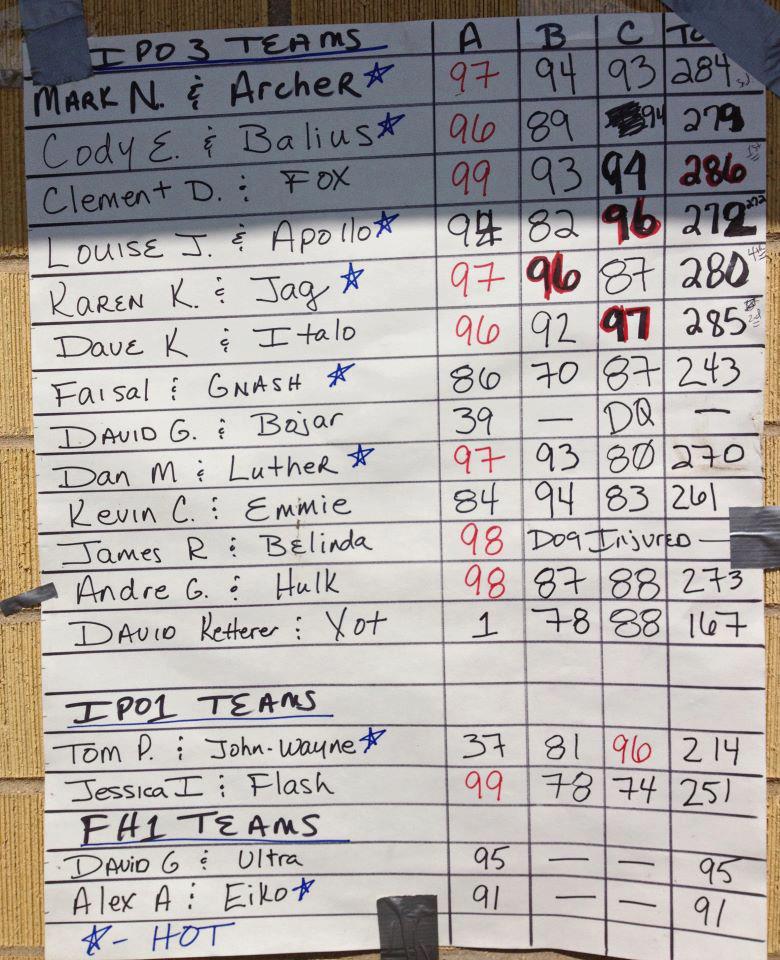 IPO3 TEAMS A B C To
MARK N. & Archer ☆ 97 94 93 284
Cody E. & Balius ☆ 96 89 94 279
Clement D. & FOX 99 93 94 286
LOUISE J. & Apollo ☆ 94 82 96 272 272
KAREN K. & Jag ☆ 97 96 87 280 4th
DAVE K & Italo 96 92 97 285
Faisal & GNASH ☆ 86 70 87 243
DAVID G. & Bojar 39 — DQ —
Dan M & Luther ☆ 97 93 80 270
Kevin C. & Emmie 84 94 83 261
James R & Belinda 98 Dog Injured —
Andre G. & Hulk 98 87 88 273
DAVID Ketterer & Yot 1 78 88 167
IPO1 TEAMS
Tom P. & John-Wayne ☆ 37 81 96 214
Jessica I & Flash 99 78 74 251
FH1 TEAMS
DAVID G & Ultra 95 — — 95
Alex A & Eiko ☆ 91 — — 91
☆ - HOT